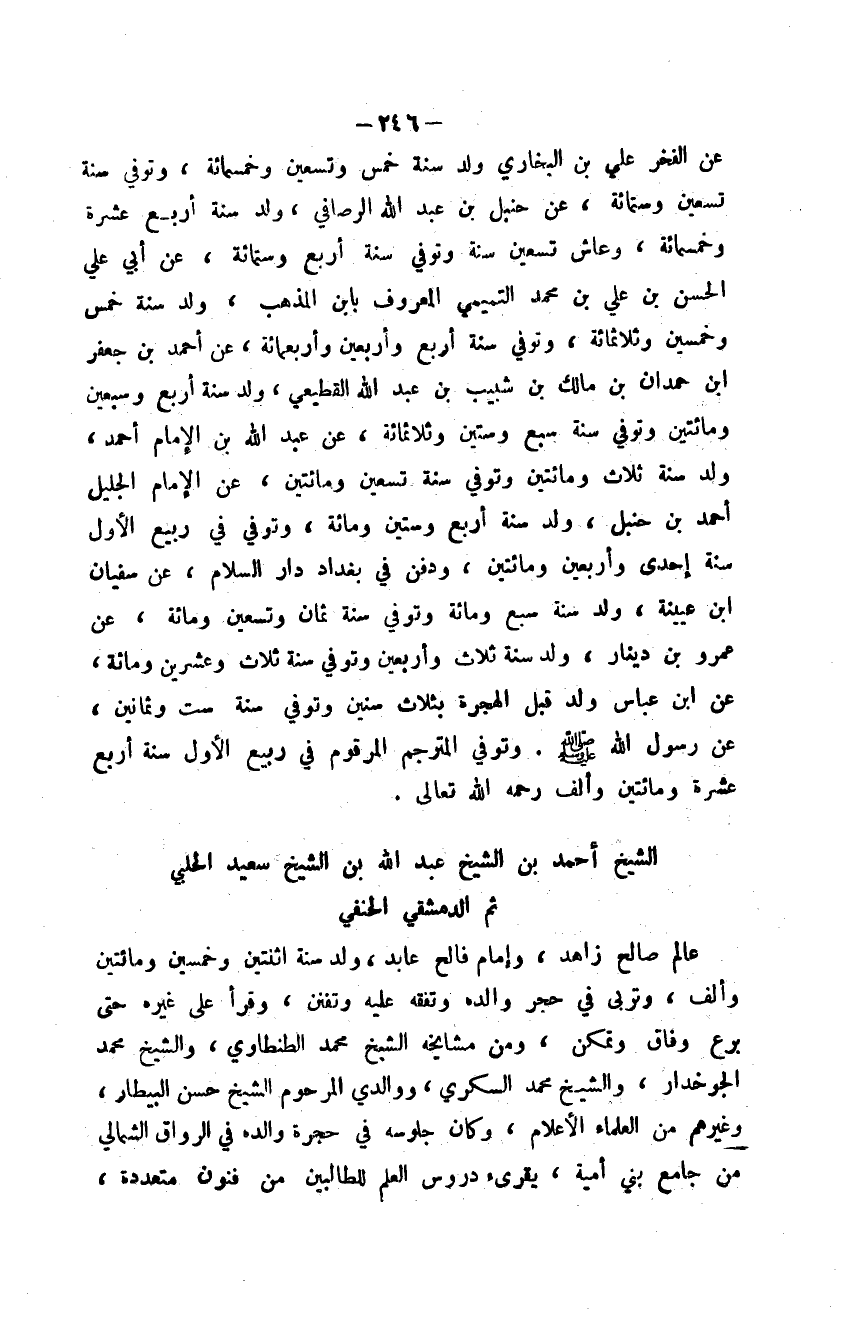 — ٢٤٦ —
عن الفخر علي بن البخاري ولد سنة خمس وتسعين وخمسمائة ، وتوفي سنة
تسعين وستمائة ، عن حنبل بن عبد الله الرصافي ، ولد سنة أربع عشرة
وخمسمائة ، وعاش تسعين سنة وتوفي سنة أربع وستمائة ، عن أبي علي
الحسن بن علي بن محمد التميمي المعروف بابن المذهب ، ولد سنة خمس
وخمسين وثلاثمائة ، وتوفي سنة أربع وأربعين وأربعمائة ، عن أحمد بن جعفر
ابن حمدان بن مالك بن شبيب بن عبد الله القطيعي ، ولد سنة أربع وسبعين
ومائتين وتوفي سنة سبع وستين وثلاثمائة ، عن عبد الله بن الإمام أحمد ،
ولد سنة ثلاث ومائتين وتوفي سنة تسعين ومائتين ، عن الإمام الجليل
أحمد بن حنبل ، ولد سنة أربع وستين ومائة ، وتوفي في ربيع الأول
سنة إحدى وأربعين ومائتين ، ودفن في بغداد دار السلام ، عن سفيان
ابن عيينة ، ولد سنة سبع ومائة وتوفي سنة ثمان وتسعين ومائة ، عن
عمرو بن دينار ، ولد سنة ثلاث وأربعين وتوفي سنة ثلاث وعشرين ومائة ،
عن ابن عباس ولد قبل الهجرة بثلاث سنين وتوفي سنة ست وثمانين ،
عن رسول الله ﷺ . وتوفي المترجم المرقوم في ربيع الأول سنة أربع
عشرة ومائتين وألف رحمه الله تعالى .
الشيخ أحمد بن الشيخ عبد الله بن الشيخ سعيد الحلبي
ثم الدمشقي الحنفي
عالم صالح زاهد ، وإمام فالح عابد ، ولد سنة اثنتين وخمسين ومائتين
وألف ، وتربى في حجر والده وتفقه عليه وتفنن ، وقرأ على غيره حتى
برع وفاق وتمكن ، ومن مشايخه الشيخ محمد الطنطاوي ، والشيخ محمد
الجوخدار ، والشيخ محمد السكري ، ووالدي المرحوم الشيخ حسن البيطار ،
وغيرهم من العلماء الأعلام ، وكان جلوسه في حجرة والده في الرواق الشمالي
من جامع بني أمية ، يقرىء دروس العلم للطالبين من فنون متعددة ،